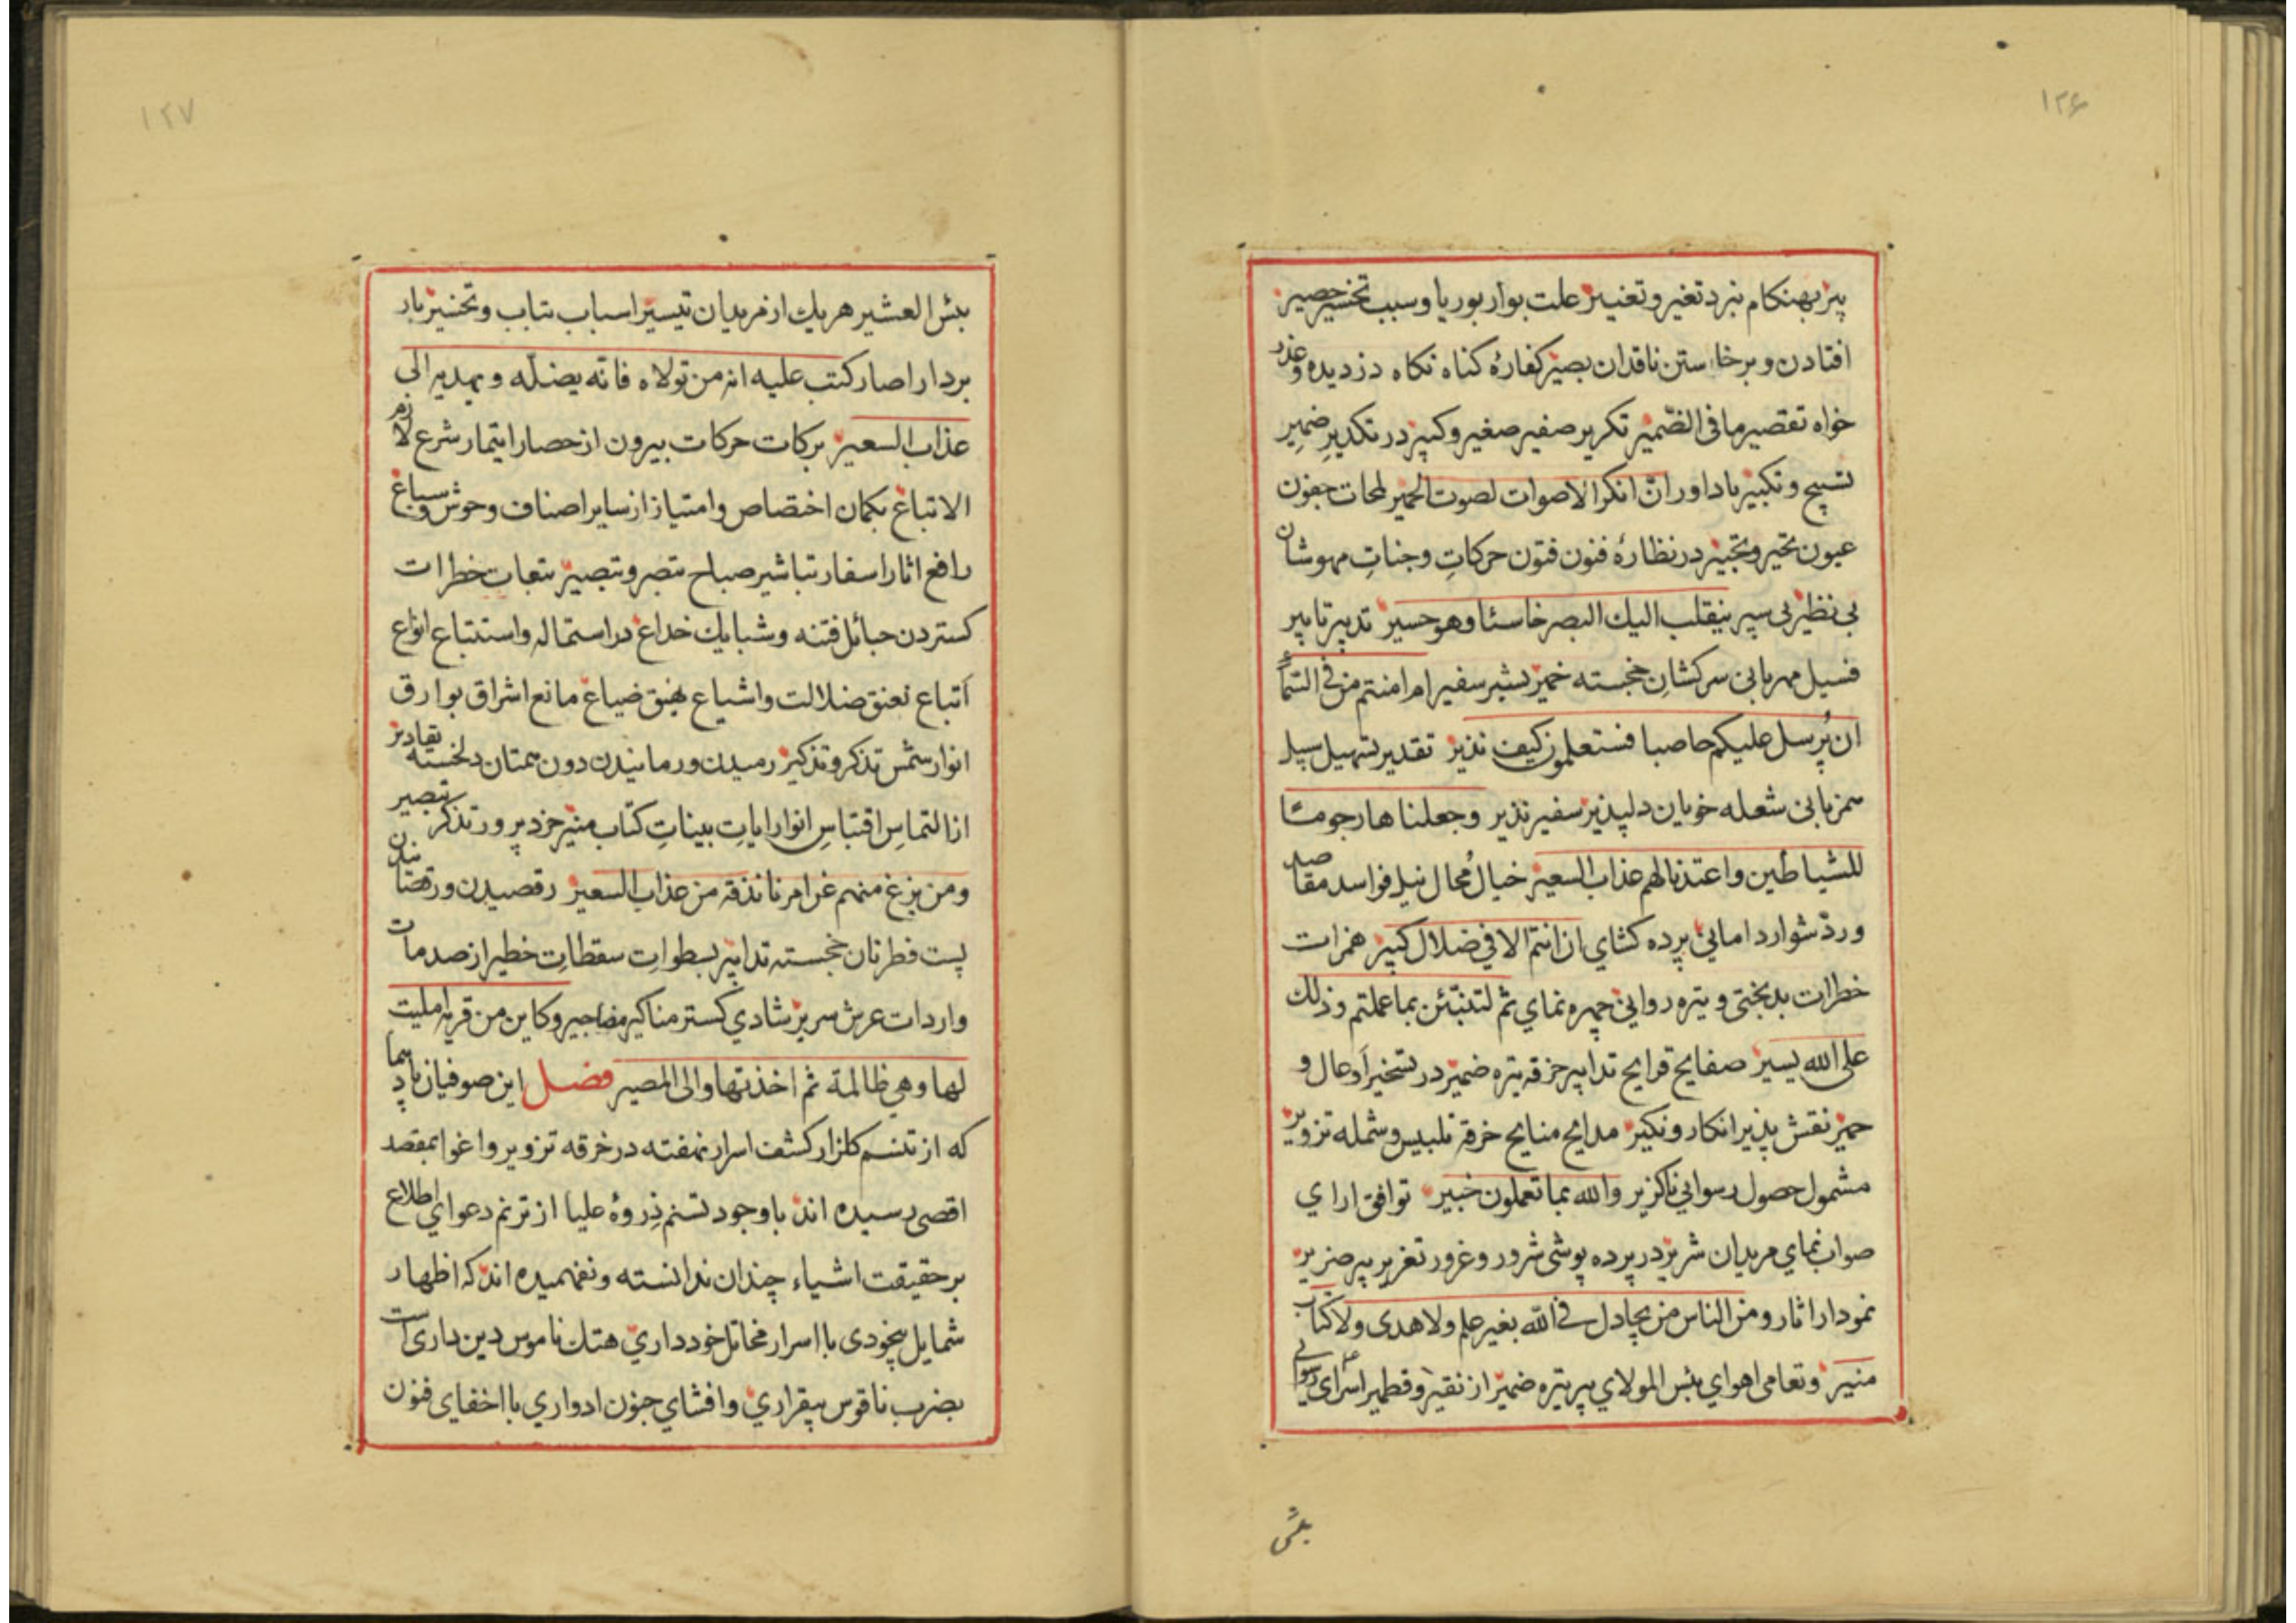 ۱۲۶
پیر بهنکام نبرد تغیر و تغییر علت بوار بوریا و سبب تخسیر حصیر
افتادن و برخاستن ناقدان بصیر کفارهٔ کناه نکاه دزدیده و عذر
خواه تقصیر ما فی الضّمیر تکریر صفیر صغیر و کبیر در تکدیرِ ضمیرِ
تسبیح و تکبیر یاداور انّ انکر الاصوات لصوت الحمیر لمحات جفون
عیون تحیر و تحییر در نظارهٔ فنون فتون حرکاتِ وجناتِ مهوشان
بی نظیر بی سپر ینقلب الیك البصر خاسئا و هو حسیر تدبیر تاپیر
فسیل مهربانی سرکشانِ خجسته خمیر بشیر سفیر ام امنتم من فی السّماء
ان یُرسل علیکم حاصبا فستعلمون کیف نذیر تقدیر تسهیل سبیل
همزبانی شعله خویان دلپذیر سفیر نذیر وجعلناها رجوما
للشیاطین واعتدنا لهم عذاب السعیر خیال مُحال نیل فواسد مقاصد
و ردّ شوارد امانی پرده کشای ان انتم الا فی ضلال کبیر همزات
خطرات بدبختی و تیره روانی چهره نمای ثم لتنبّئن بما عملتم وذلك
علی الله یسیر صفایح قرایح تدابیر خرقه تیره ضمیر در تسخیر اَوعال و
حمیر نقش پذیر انکار و نکیر مدایح منایح خرقه تلبیس و شمله تزویر
مشمول حصول رسوایی ناکزیر والله بما تعملون خبیر توافق ارای
صواب نمای مریدان شریر در پرده پوشی شرور و غرور تغریر پیر ضریر
نمودار اثار ومن الناس من یجادل فی الله بغیر علم ولا هدی ولا کتاب
منیر و تعامی اهوای بئس المولای پیر تیره ضمیر از نقیر و قطمیر اسرای رسوایی
بئس
۱۲۷
بئس العشیر هر یك از مریدان تیسیر اسباب تباب و تخسیر بار
بردار اصار کتب علیه انه من تولاه فانّه یضلّه و یهدیه الی
عذاب السعیر برکات حرکات بیرون از حصار ایتمار شرع لازم
الاتباع بکمان اختصاص و امتیاز از سایر اصناف وحوش و سباع
رافع اثار اسفار تباشیر صباح تبصر و تبصیر تبعات خطرات
کستردن حبائل فتنه و شبایك خداع در استماله و استتباع انواع
اَتباع نعنق ضلالت و اشیاع نهیق ضیاع مانع اشراق بوارق
انوار شمس تذکر و تذکیر رمیدن و رمانیدن دون همتان دلخسته تقادیر
از التماسِ اقتباسِ انوار ایاتِ بیناتِ کتاب منیر خرد پرور تذکر تبصیر
ومن یزغ منهم عن امرنا نذقه من عذاب السعیر رقصیدن و رقصانیدن
پست فطرتان خجسته تدابیر بسطواتِ سقطاتِ خطیر از صدمات
واردات عرش سریر شادی کستر مناکیر مضاجیر وکاین من قریه املیت
لها وهی ظالمة ثم اخذتها والی المصیر فصل این صوفیان باد پیما
که از تنسم کلزار کشف اسرار نهفته در خرقه تزویر و اغوا بمقصد
اقصی رسیده اند با وجود تسنم ذِروهٔ علیا از ترنم دعوای اطلاع
بر حقیقت اشیاء چندان ندانسته و نفهمیده اند که اظهار
شمایل بیخودی با اسرار مخائل خود داری هتك ناموس دین داری است
بضرب ناقوس بیقراری و افشای جنون ادواری با اخفای فنون